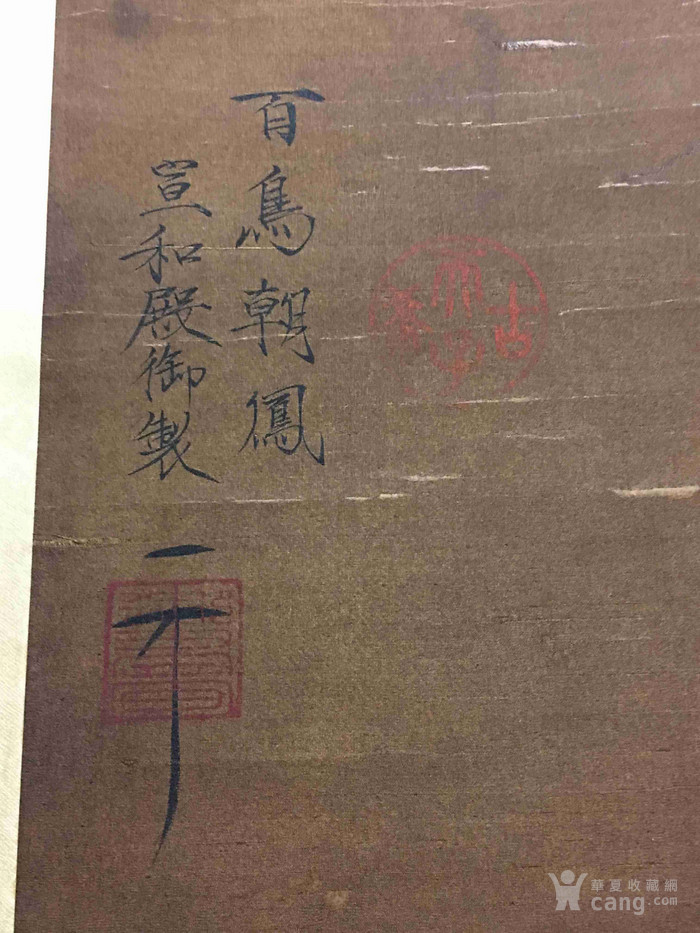 百鳥朝鳳
宣和殿御製
古希天子
華夏收藏網
cang.com